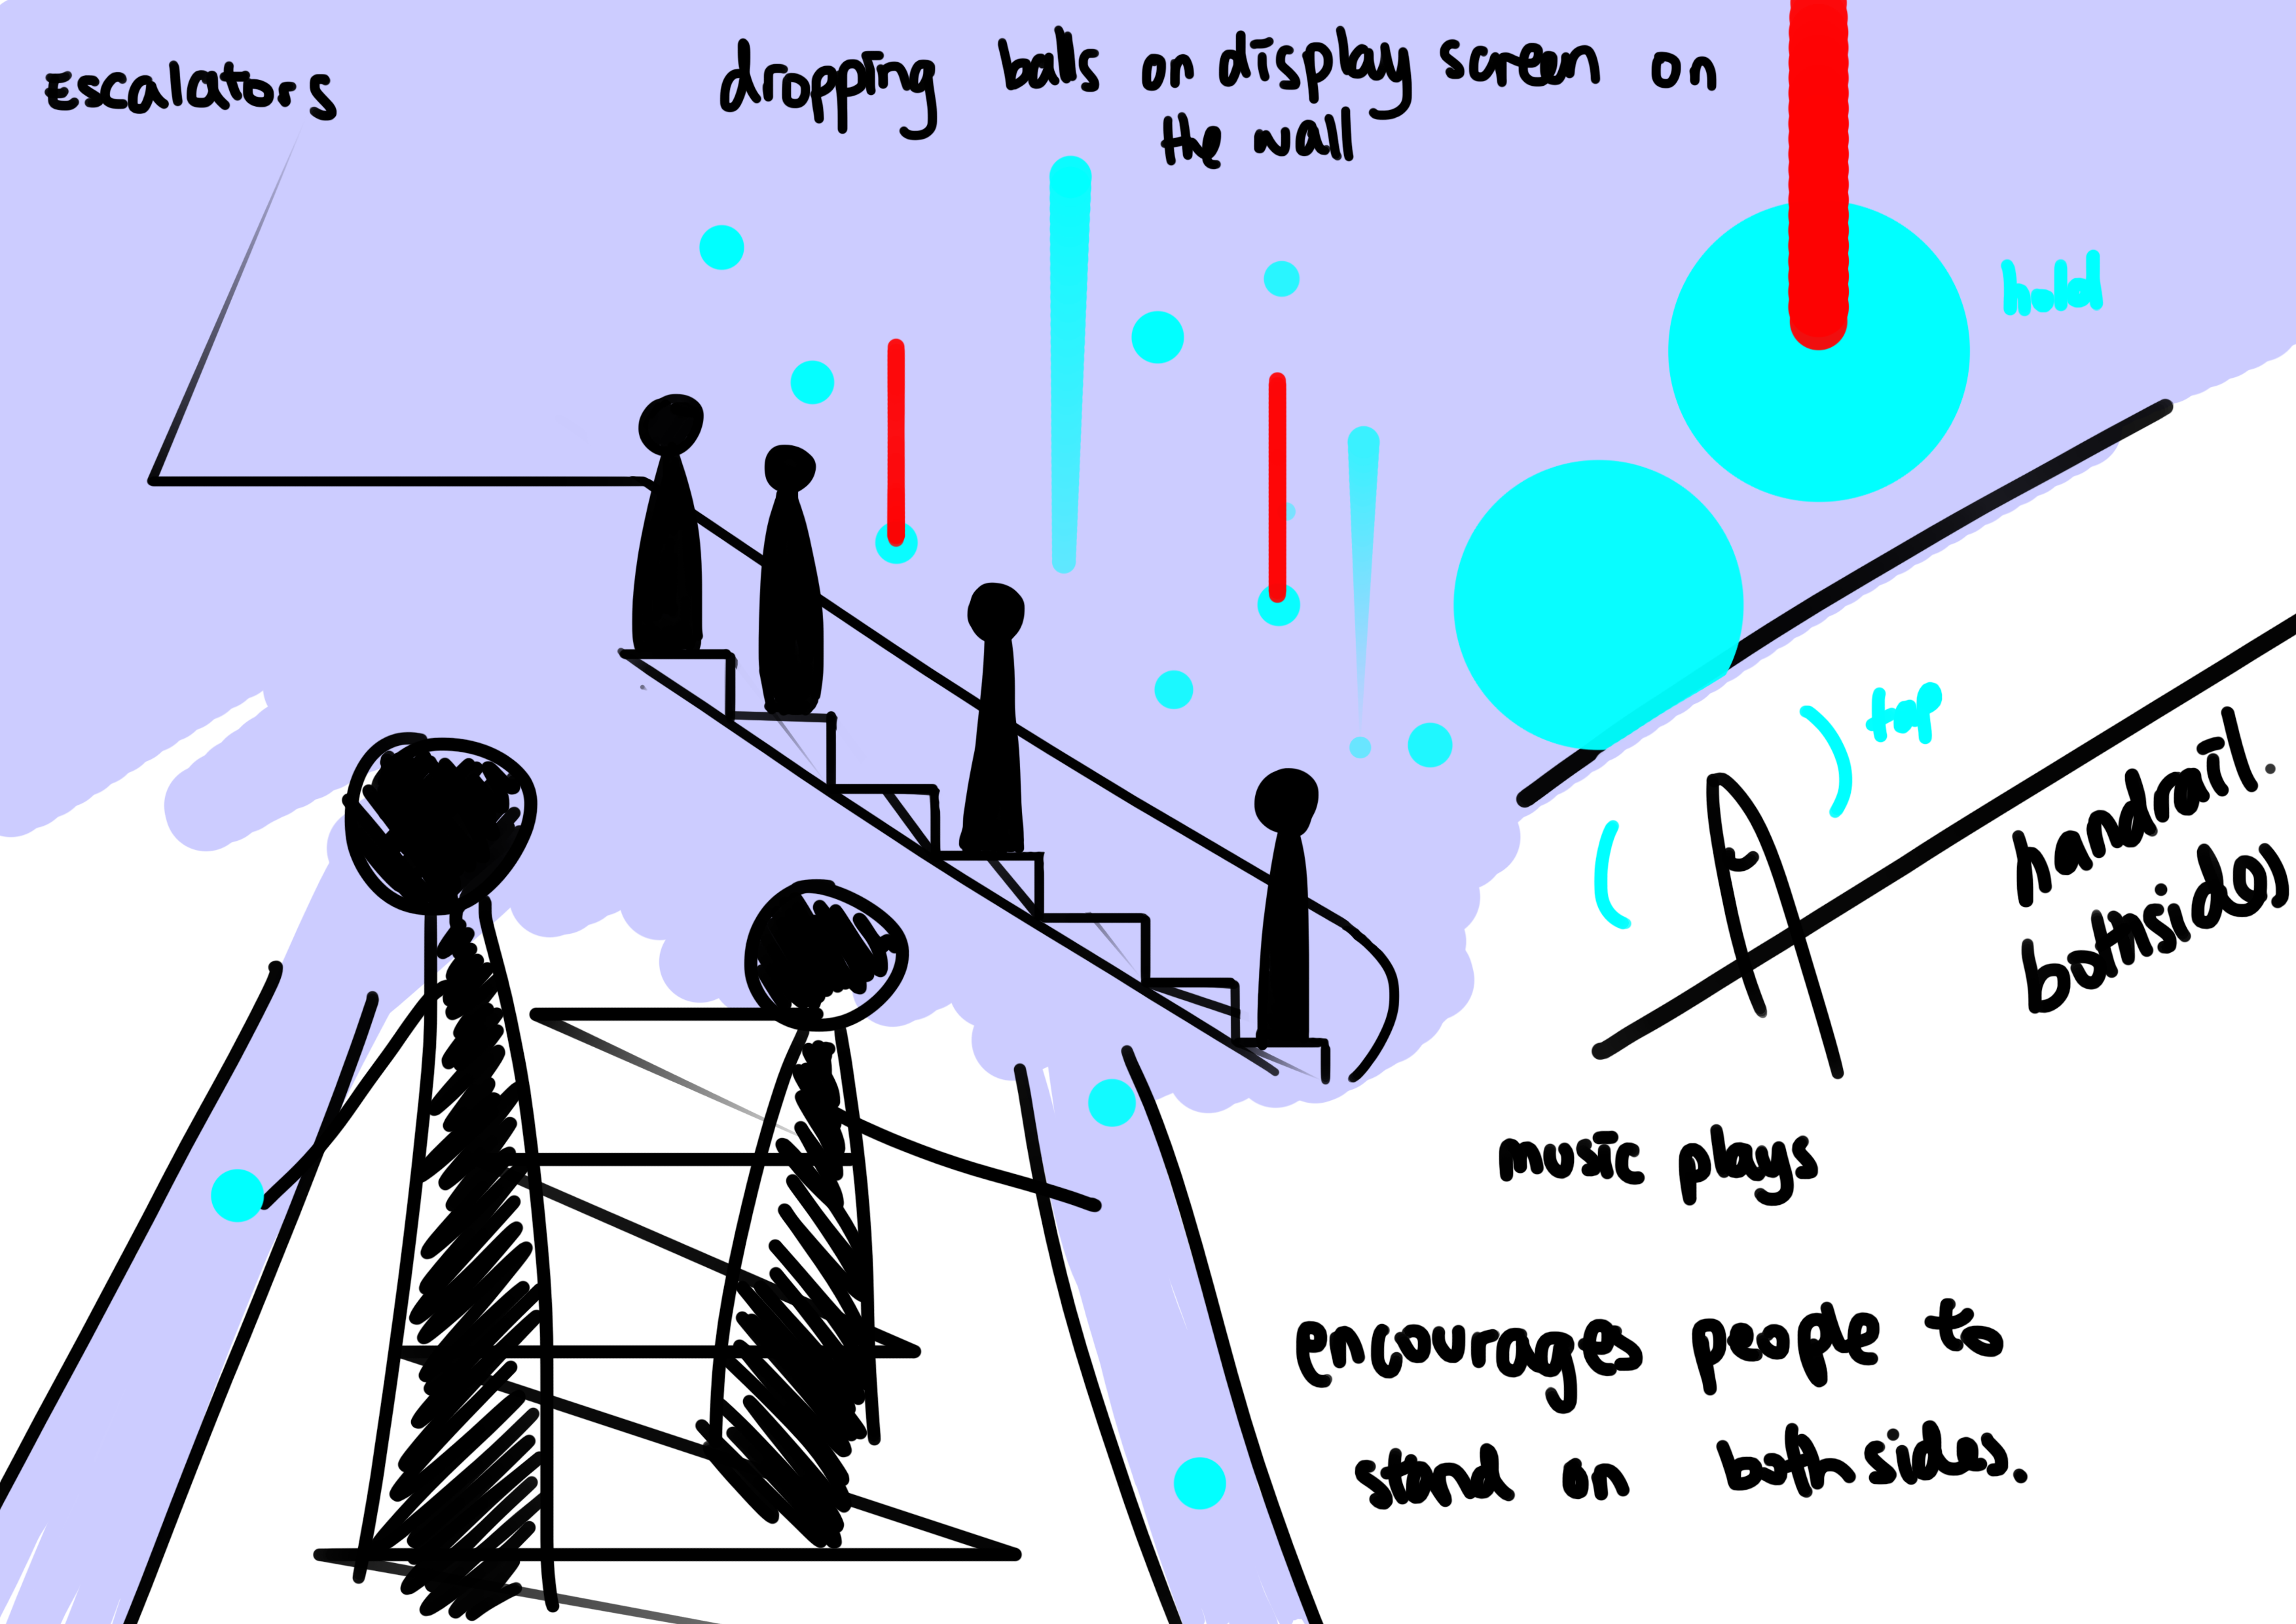 Escalators
dropping balls on display screen on
the wall
hold
tap
handrail.
bothsides
music plays
encourages people to
stand on both sides.